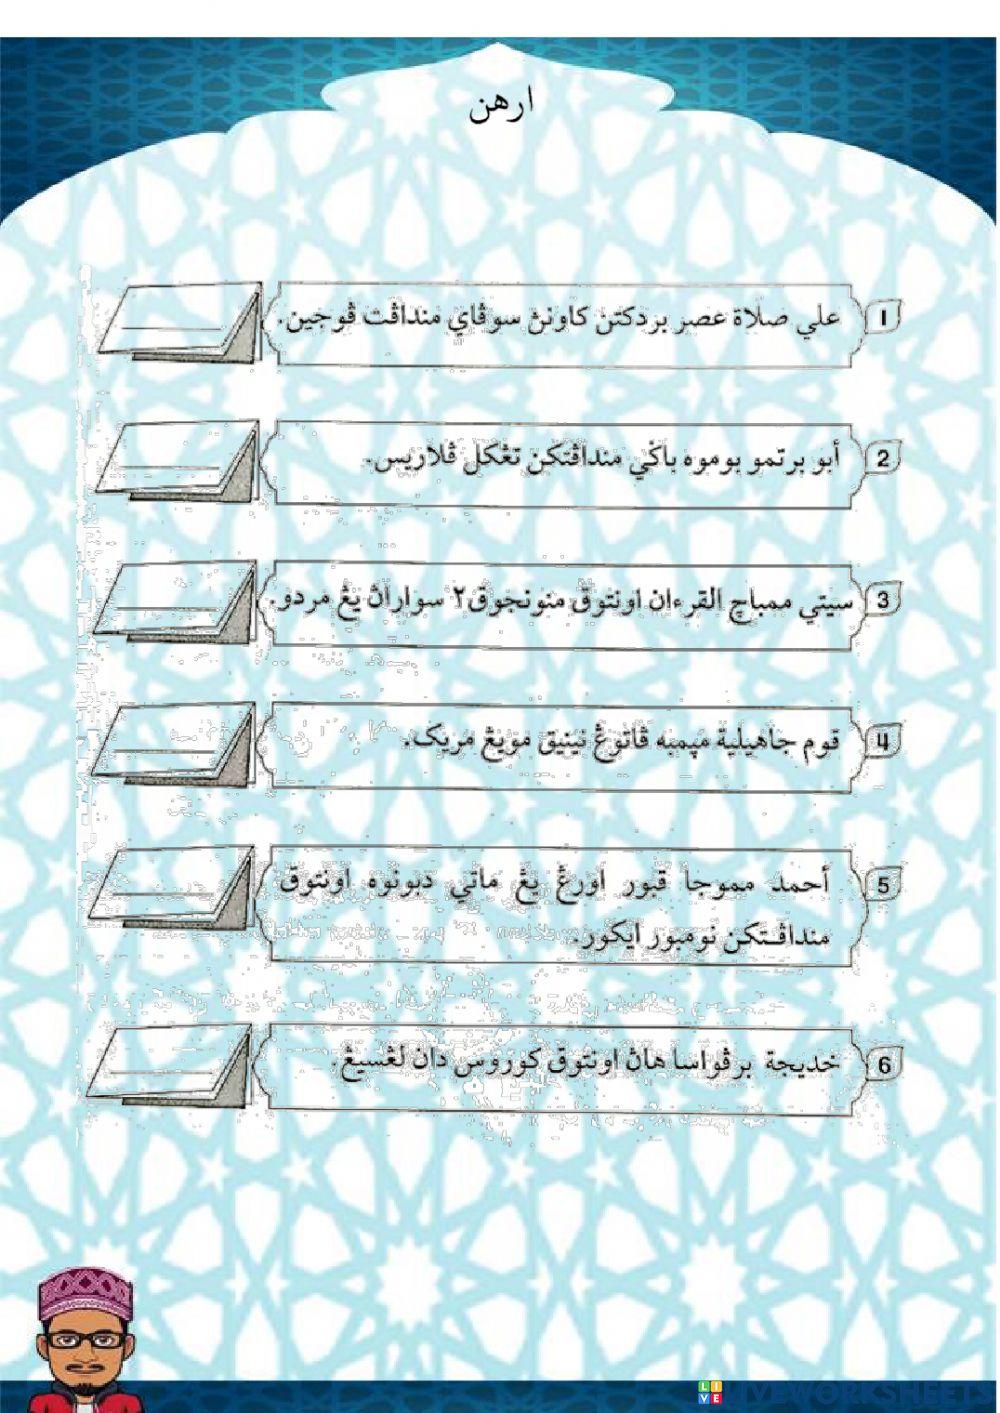 ارهن
1 علي صلاة عصر بردكتن كاونڽ سوڤاي منداڤت ڤوجين.
2 أبو برتمو بوموه باݢي منداڤتكن تڠكل ڤلاريس.
3 سيتي ممباچ القرءان اونتوق منونجوق٢ سواراڽ يڠ مردو.
4 قوم جاهيلية مڽمبه ڤاتوڠ نينيق مويڠ مريک.
5 أحمد مموجا قبور اورڠ يڠ ماتي دبونوه اونتوق
منداڤتكن نومبور ايكور.
6 خديجة برڤواسا هاڽ اونتوق كوروس دان لڠسيڠ.
LIVEWORKSHEETS